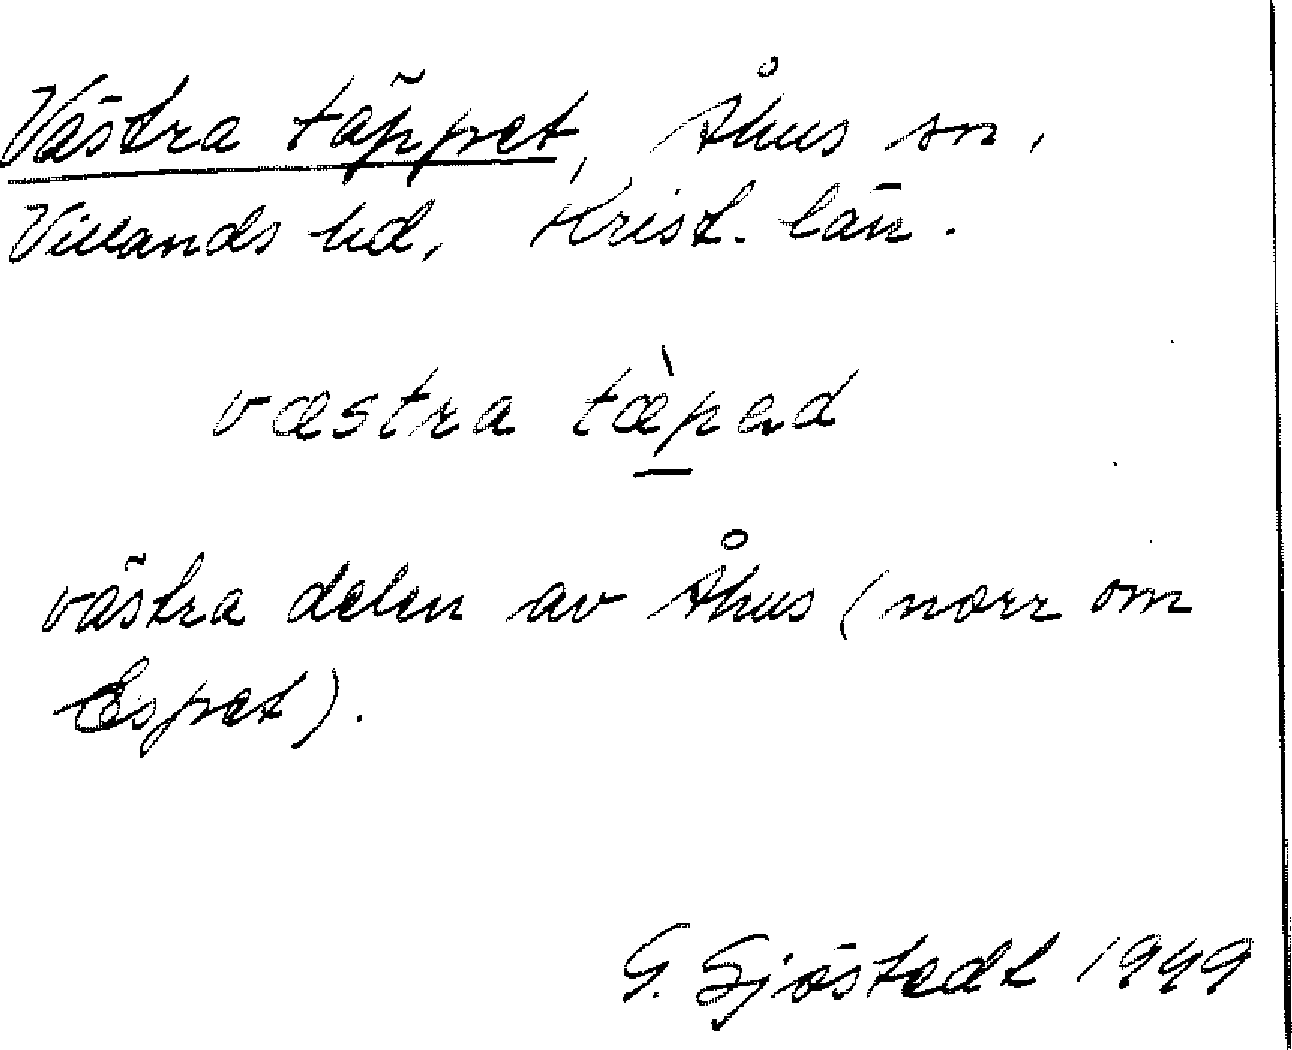 Västra täppet, Åhus sn,
Villands hd, Krist. län.
væstra tæ̀ped
västra delen av Åhus (norr om
Espet).
G. Sjöstedt 1949